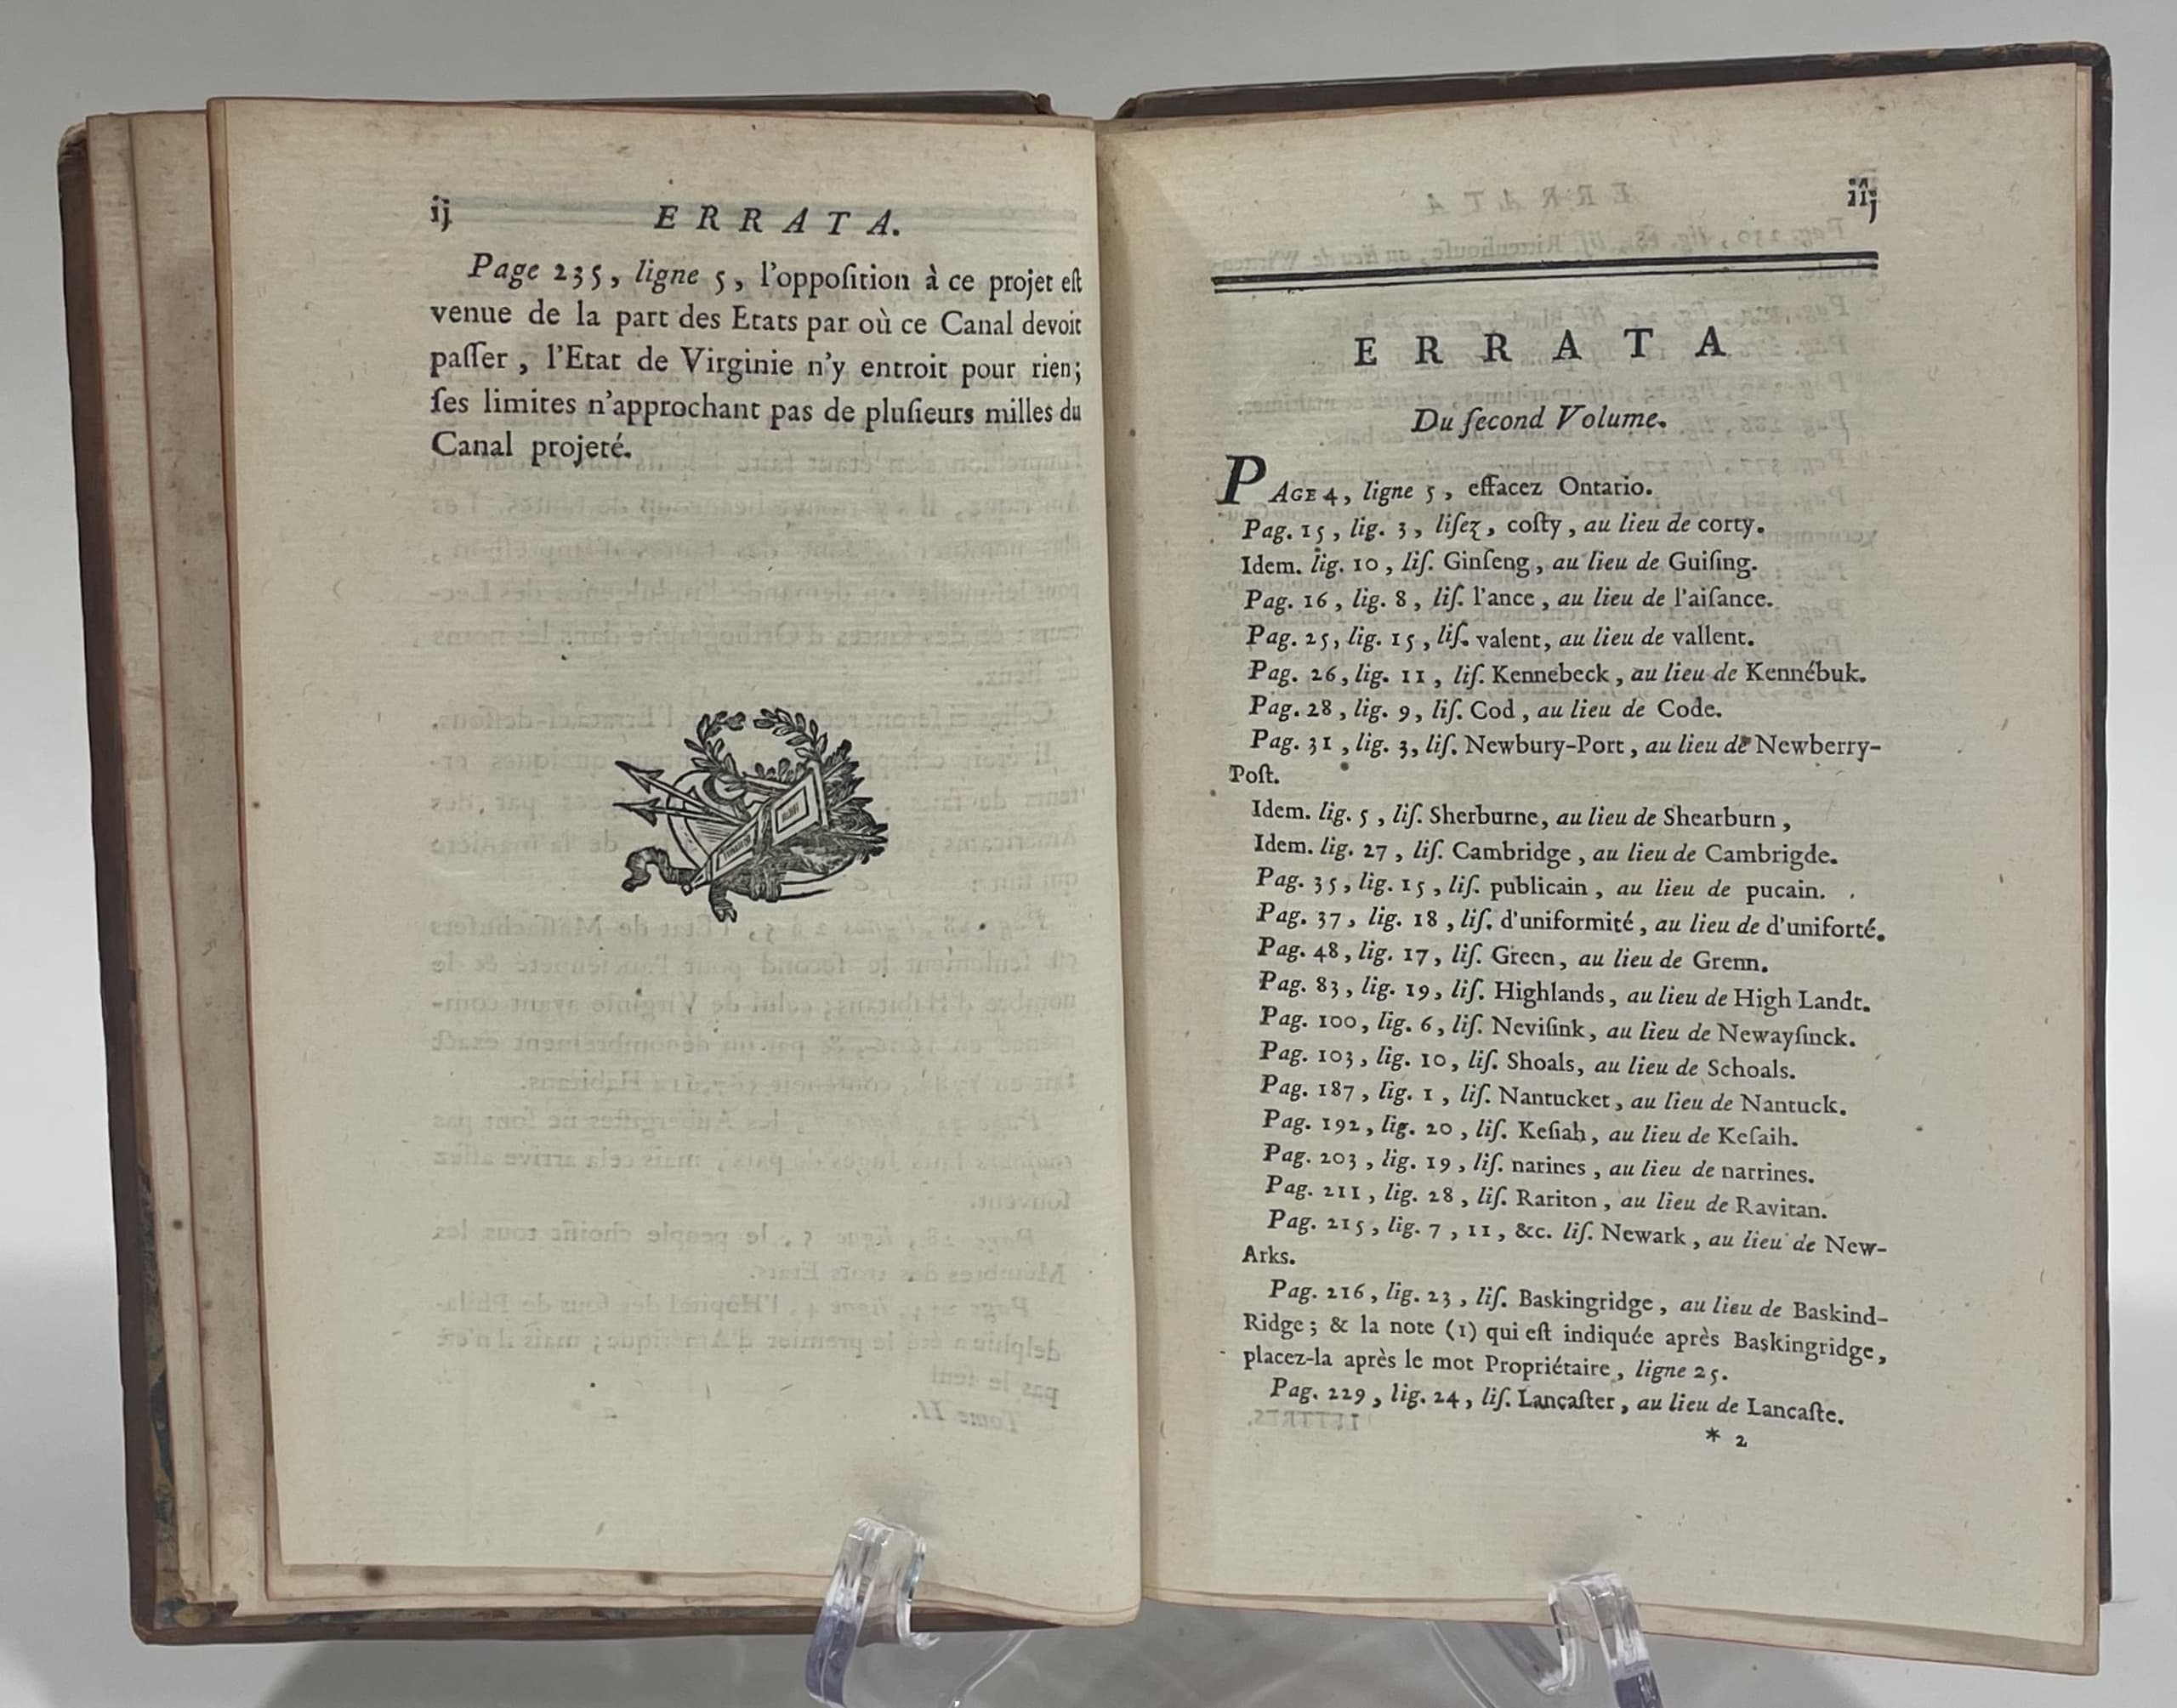 ij
ERRATA.
Page 235, ligne 5, l'oppoſition à ce projet eſt
venue de la part des Etats par où ce Canal devoit
paſſer, l'Etat de Virginie n'y entroit pour rien;
ſes limites n'approchant pas de pluſieurs milles du
Canal projeté.
iij
ERRATA
Du ſecond Volume.
PAGE 4, ligne 5, effacez Ontario.
Pag. 15, lig. 3, liſez, coſty, au lieu de corty.
Idem. lig. 10, liſ. Ginſeng, au lieu de Guiſing.
Pag. 16, lig. 8, liſ. l'ance, au lieu de l'aiſance.
Pag. 25, lig. 15, liſ. valent, au lieu de vallent.
Pag. 26, lig. 11, liſ. Kennebeck, au lieu de Kennébuk.
Pag. 28, lig. 9, liſ. Cod, au lieu de Code.
Pag. 31, lig. 3, liſ. Newbury-Port, au lieu de Newberry-
Poſt.
Idem. lig. 5, liſ. Sherburne, au lieu de Shearburn,
Idem. lig. 27, liſ. Cambridge, au lieu de Cambrigde.
Pag. 35, lig. 15, liſ. publicain, au lieu de pucain.
Pag. 37, lig. 18, liſ. d'uniformité, au lieu de d'uniforté.
Pag. 48, lig. 17, liſ. Green, au lieu de Grenn.
Pag. 83, lig. 19, liſ. Highlands, au lieu de High Landt.
Pag. 100, lig. 6, liſ. Neviſink, au lieu de Newayſinck.
Pag. 103, lig. 10, liſ. Shoals, au lieu de Schoals.
Pag. 187, lig. 1, liſ. Nantucket, au lieu de Nantuck.
Pag. 192, lig. 20, liſ. Keſiah, au lieu de Keſaih.
Pag. 203, lig. 19, liſ. narines, au lieu de narrines.
Pag. 211, lig. 28, liſ. Rariton, au lieu de Ravitan.
Pag. 215, lig. 7, 11, &c. liſ. Newark, au lieu de New-
Arks.
Pag. 216, lig. 23, liſ. Baskingridge, au lieu de Baskind-
Ridge; & la note (1) qui eſt indiquée après Baskingridge,
placez-la après le mot Propriétaire, ligne 25.
Pag. 229, lig. 24, liſ. Lancaſter, au lieu de Lancaſte.
* 2